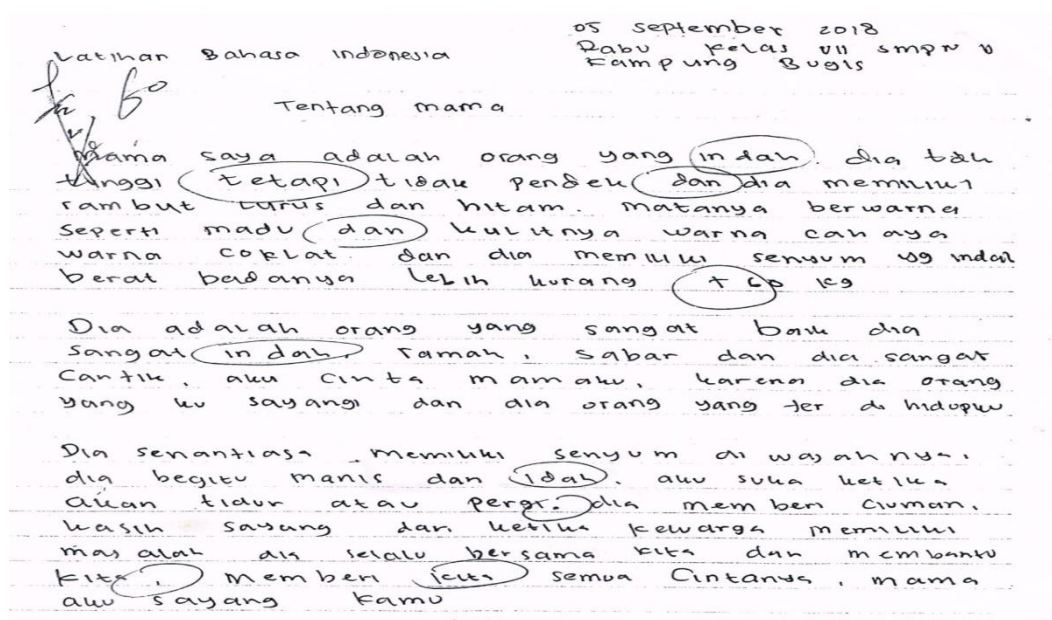 05 September 2018
Latihan Bahasa Indonesia
Rabu Kelas VII SMPN V
Kampung Bugis
60
Tentang mama
Mama saya adalah orang yang indah. dia tak
tinggi tetapi tidak pendek dan dia memiliki
rambut lurus dan hitam. matanya berwarna
seperti madu dan kulitnya warna cahaya
warna coklat dan dia memiliki senyum yg indah
berat badanya lebih kurang + 60 kg
Dia adalah orang yang sangat baik dia
sangat indah, ramah, sabar dan dia sangat
Cantik, aku cinta mamaku, karena dia orang
yang ku sayangi dan dia orang yang ter di hidupku
Dia senantiasa memiliki senyum di wajahnya.
dia begitu manis dan idah. aku suka ketika
akan tidur atau pergi. dia memberi ciuman.
kasih sayang dan ketika keluarga memiliki
masalah dia selalu bersama kita dan membantu
kita, memberi kita semua cintanya, mama
aku sayang kamu